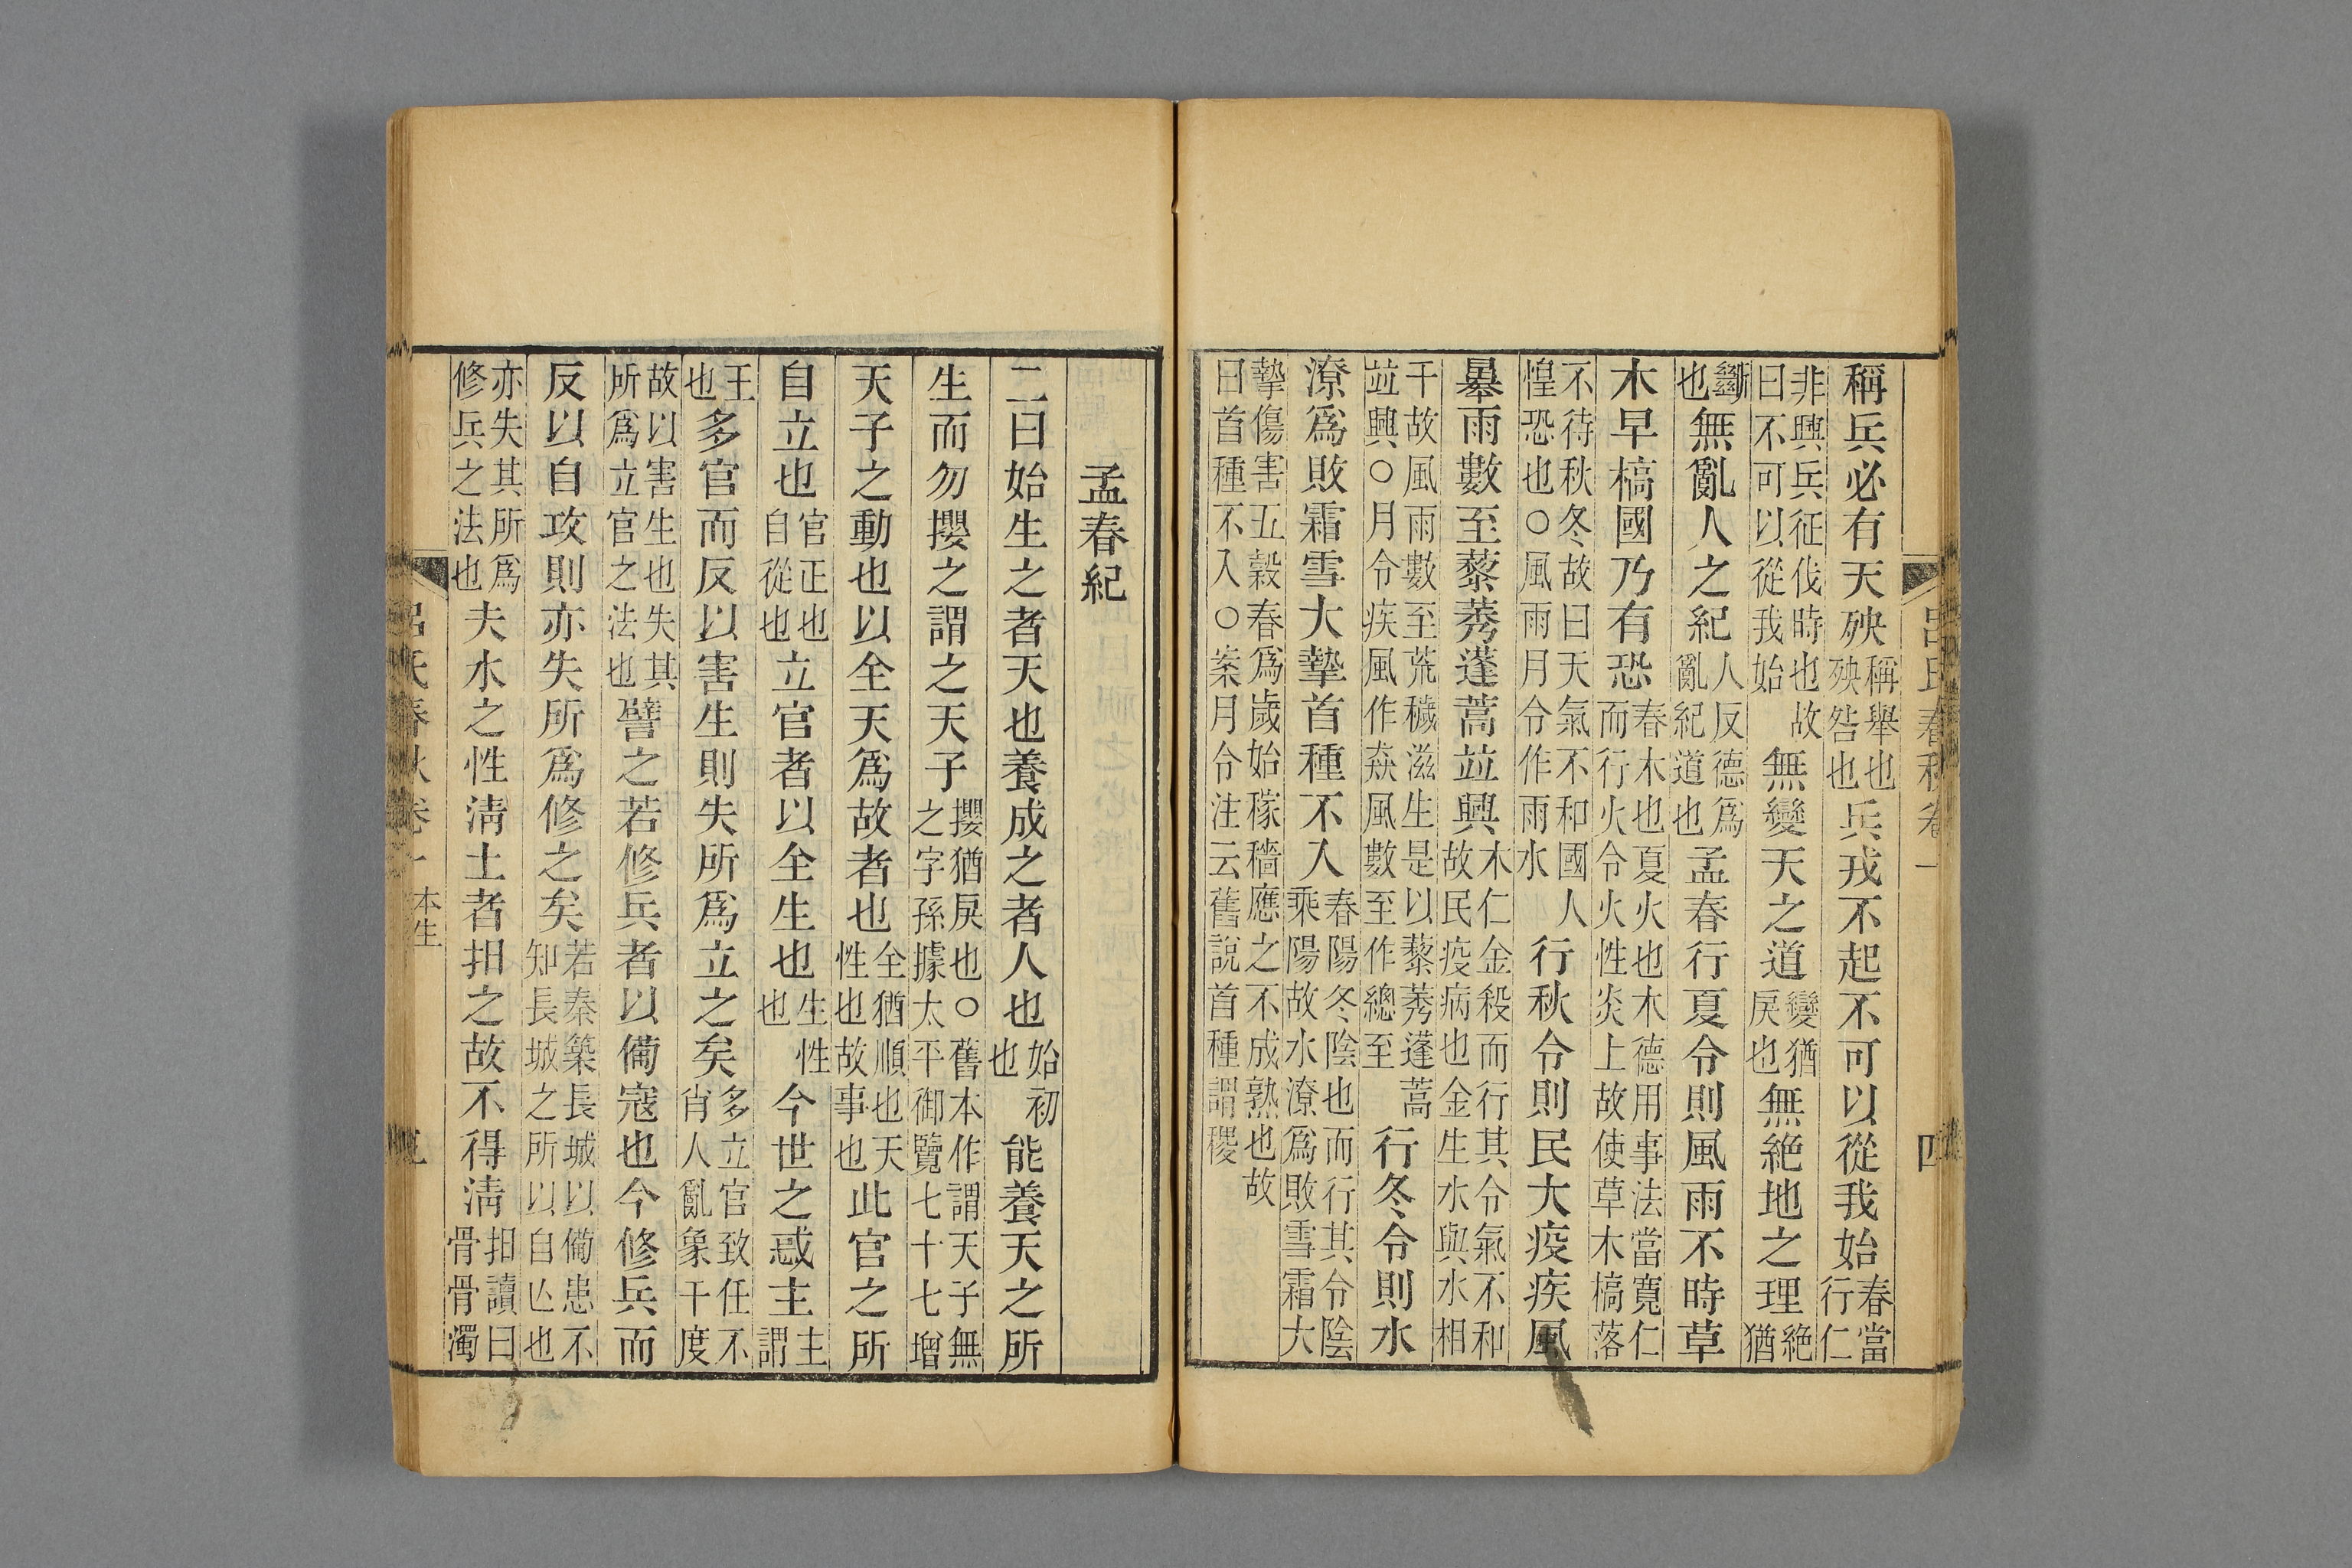 呂氏春秋卷一 四
稱兵必有天殃稱舉也殃咎也兵戎不起不可以從我始春當行仁
非興兵征伐時也故曰不可以從我始無變天之道變猶戾也無絕地之理絕猶
斷也無亂人之紀人反德爲亂紀道也孟春行夏令則風雨不時草
木早槁國乃有恐春木也夏火也木德用事法當寬仁而行火令火性炎上故使草木槁落
不待秋冬故曰天氣不和國人惶恐也○風雨月令作雨水行秋令則民大疫疾風
暴雨數至藜莠蓬蒿竝興木仁金殺而行其令氣不和故民疫病也金生水與水相
干故風雨數至荒穢滋生是以藜莠蓬蒿竝興○月令疾風作猋風數至作總至行冬令則水
潦爲敗霜雪大摯首種不入春陽冬陰也而行其令陰乘陽故水潦爲敗雪霜大
摯傷害五穀春爲歲始稼穡應之不成熟也故曰首種不入○案月令注云舊說首種謂稷
孟春紀
二曰始生之者天也養成之者人也始初也能養天之所
生而勿攖之謂之天子攖猶戾也○舊本作謂天子無之字孫據太平御覽七十七增
天子之動也以全天爲故者也全猶順也天性也故事也此官之所
自立也官正也自從也立官者以全生也生性也今世之惑主主謂
王也多官而反以害生則失所爲立之矣多立官致任不肖人亂象干度
故以害生也失其所爲立官之法也譬之若修兵者以備寇也今修兵而
反以自攻則亦失所爲修之矣若秦築長城以備患不知長城之所以自亾也
亦失其所爲修兵之法也夫水之性淸土者抇之故不得淸抇讀曰骨骨濁
呂氏春秋卷一 本生 五